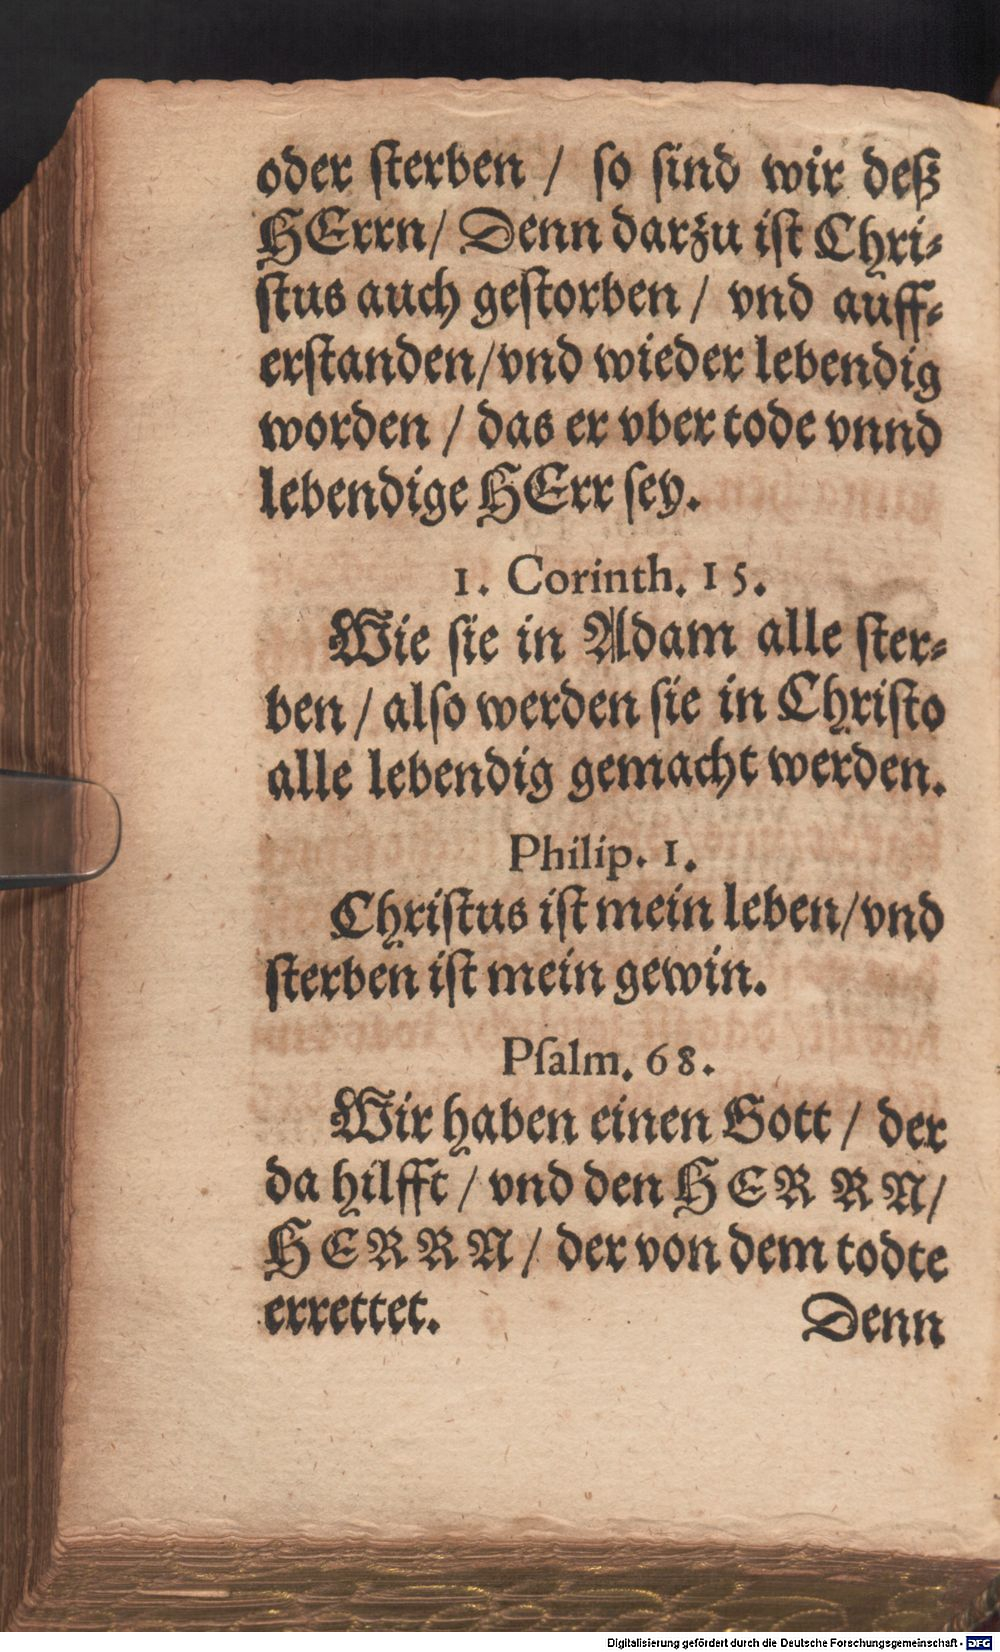 oder ſterben / ſo ſind wir deß
HErrn/ Denn darzu iſt Chri-
ſtus auch geſtorben / vnd auff-
erſtanden/vnd wieder lebendig
worden / das er vber tode vnnd
lebendige HErr ſey.
1. Corinth. 15.
Wie ſie in Adam alle ſter-
ben / alſo werden ſie in Chriſto
alle lebendig gemacht werden.
Philip. 1.
Chriſtus iſt mein leben/vnd
ſterben iſt mein gewin.
Pſalm. 68.
Wir haben einen Gott / der
da hilfft / vnd den HERRN/
HERRN / der von dem todte
errettet.
Denn
Digitalisierung gefördert durch die Deutsche Forschungsgemeinschaft - DFG